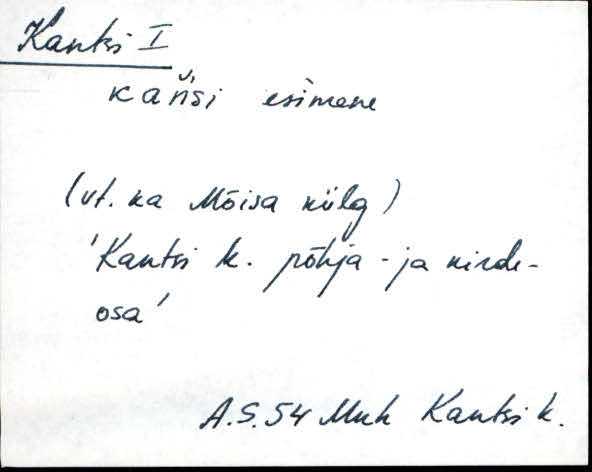 Kantsi I
kańsi esimene
(vt. ka Mõisa külg)
'Kantsi k. põhja- ja kirde-
osa'
A.S. 54 Muh Kantsi k.